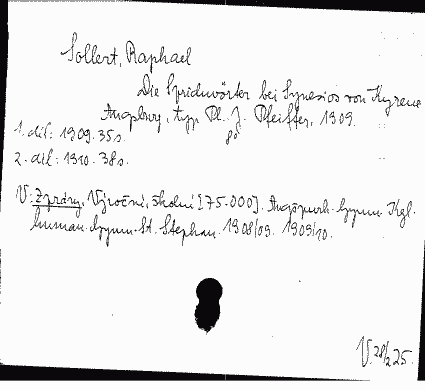 Sollert, Raphael
Die Sprichwörter bei Synesios von Kyrene
Augsburg, typ. Ph. J. Pfeiffer, 1909.
8°
1. díl: 1909. 35 s.
2. díl: 1910. 38 s.
V: Zprávy, Výroční, školní [75.000]. Augspurk. Gymn. Kgl.
human. Gymn. St. Stephan. 1908/09. 1909/10.
V. 28/2 25.